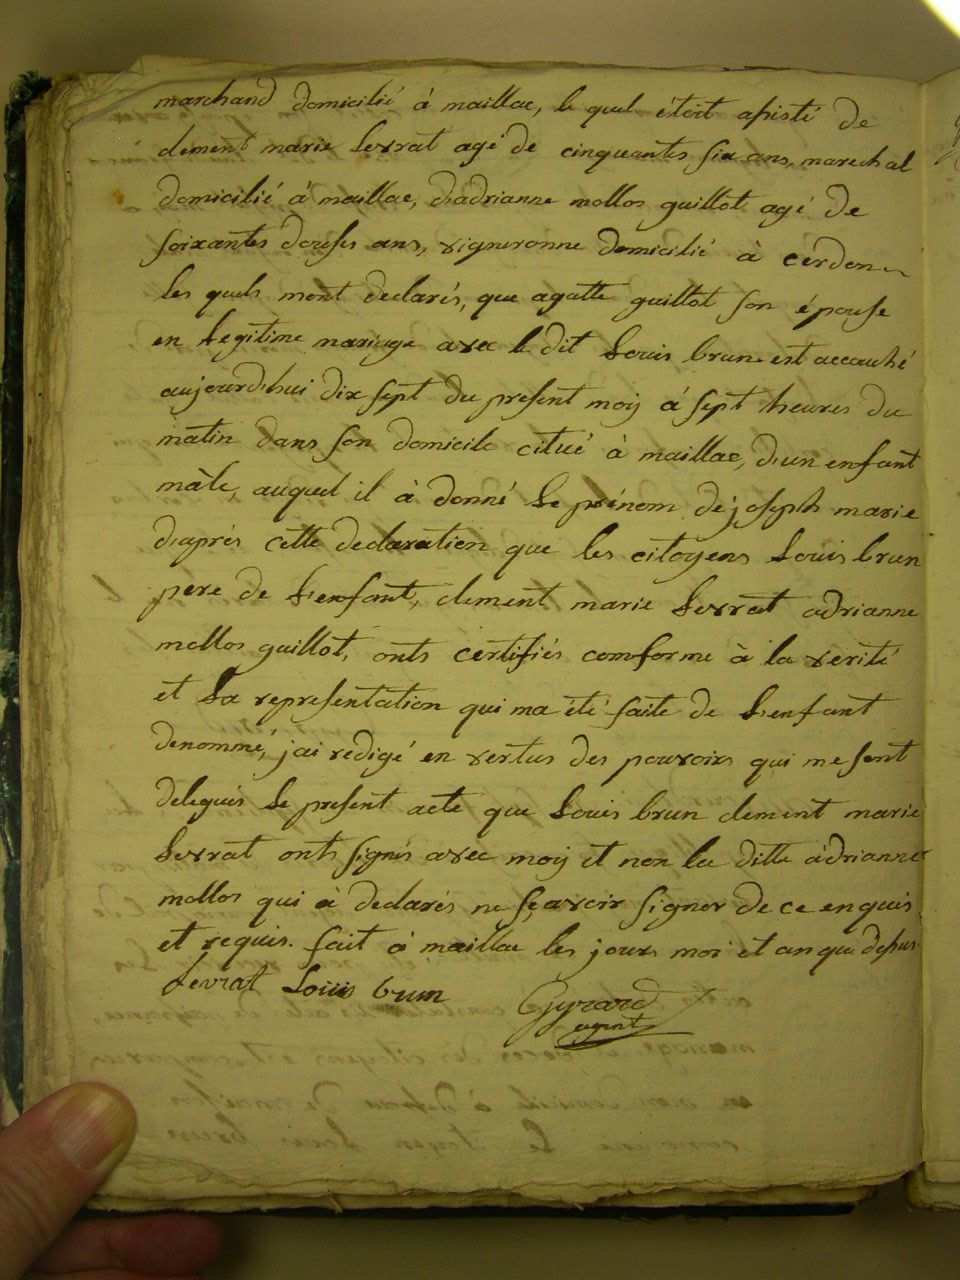 marchand domicilié à maillac, le quel étoit assisté de
clement marie levrat agé de cinquantes six ans, marechal
domicilié à maillac, d'adrianne mollos guillot agé de
soixantes douses ans, vigneronne domicilié à cerdon
les quels mont declarés, que agatte guillot son épouse
en legitime mariage avec le dit Louis brun est accouché
aujourd'hui dix sept du present moy à sept heures du
matin dans son domicile citué à maillac, d'un enfant
mâle, auquel il à donné le prénom de joseph marie
d'aprés cette declaration que les citoyens Louis brun
pere de L'enfant, clement marie Levrat adrianne
mollos guillot, onts certifiés comforme à la verité
et La representation qui ma été faite de L'enfant
denommé, jai redigé en vertus des pouvoirs qui me sont
delegués Le present acte que Louis brun clement marie
Levrat onts signés avec moy et non la ditte adrianne
mollos qui à declarés ne sçavoir signer de ce enquis
et requis. fait à maillac les jours moi et an que desus
Levrat Louis brun Gyrard
agent